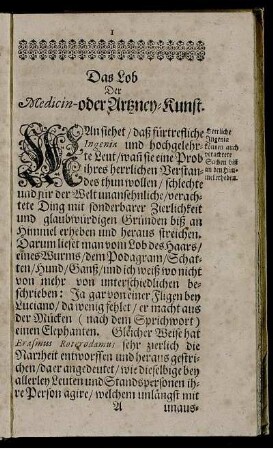 1
Das Lob
Der
Medicin- oder Artzney-Kunst.
MAn siehet / daß fürtrefliche
Ingenia und hochgelehr-
te Leut / wañ sie eine Prob
ihres herrlichen Verstan-
des thun wollen / schlechte
und für der Welt unansehnliche / verach-
tete Ding mit sonderbarer Zierlichkeit
und glaubwürdigen Gründen biß an
Himmel erheben und heraus streichen.
Darum lieset man vom Lob des Haars /
eines Wurms / dem Podagram / Schat-
ten / Hund / Ganß / und ich weiß wo nicht
von mehr von unterschiedlichen be-
schrieben: Ja gar von einer Fligen bey
Luciano / da wenig fehlet / er macht aus
der Mücken (nach dem Sprichwort)
einen Elephanten. Gleicher Weise hat
Erasmus Roterodamus sehr zierlich die
Narrheit entworffen und heraus gestri-
chen / da er angedeutet / wie dieselbige bey
allerley Leuten und Standspersonen ih-
re Person agire / welchem umlängst mit
A unaus-
Herrliche
Ingenia
können auch
verachtete
Sachen biß
an den Him-
mel erheben.